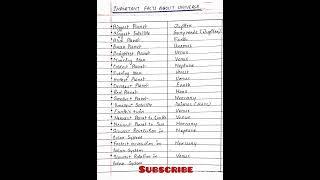 IMPORTANT FACTS ABOUT UNIVERSE
Biggest Planet Jupiter
Biggest Satellite Ganymede (Jupiter)
Blue Planet Earth
Green Planet Uranus
Brightest Planet Venus
Morning Star Venus
Coldest Planet Neptune
Evening Star Venus
Hottest Planet Venus
Densest Planet Earth
Red Planet Mars
Smallest Planet Mercury
Smallest Satellite
Earth's twin Venus
Nearest Planet to Earth Venus
Nearest Planet to Sun Mercury
Slowest Revolution in Neptune
Solar System
Fastest revolution in Mercury
Solar System
Slowest Rotation in Venus
Solar System
SUBSCRIBE